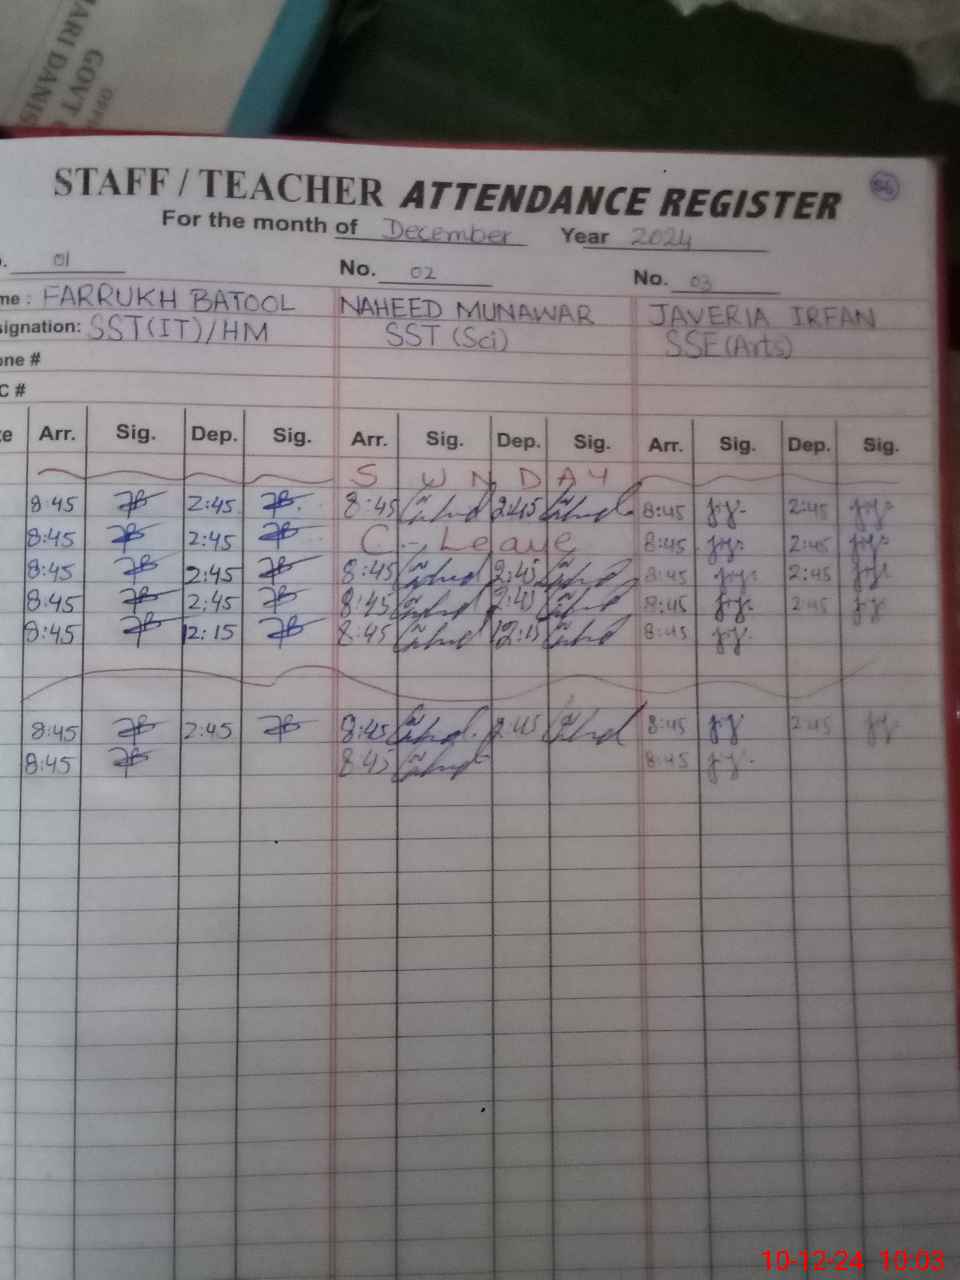 MARI DANIS
GOVT
OFFI
STAFF / TEACHER ATTENDANCE REGISTER
For the month of December Year 2024
01 No. 02 No. 03
me : FARRUKH BATOOL NAHEED MUNAWAR JAVERIA IRFAN
signation: SST(IT)/HM SST (Sci) SSE(Arts)
one #
C #
te Arr. Sig. Dep. Sig. Arr. Sig. Dep. Sig. Arr. Sig. Dep. Sig.
S U N D A Y
8:45 2:45 8:45 2:45 8:45 2:45
8:45 2:45 C - Leave 8:45 2:45
8:45 2:45 8:45 2:45 8:45 2:45
8:45 2:45 8:45 2:45 8:45 2:45
8:45 12:15 8:45 12:15 8:45
8:45 2:45 8:45 2:45 8:45 2:45
8:45 8:45 8:45
10-12-24 10:03